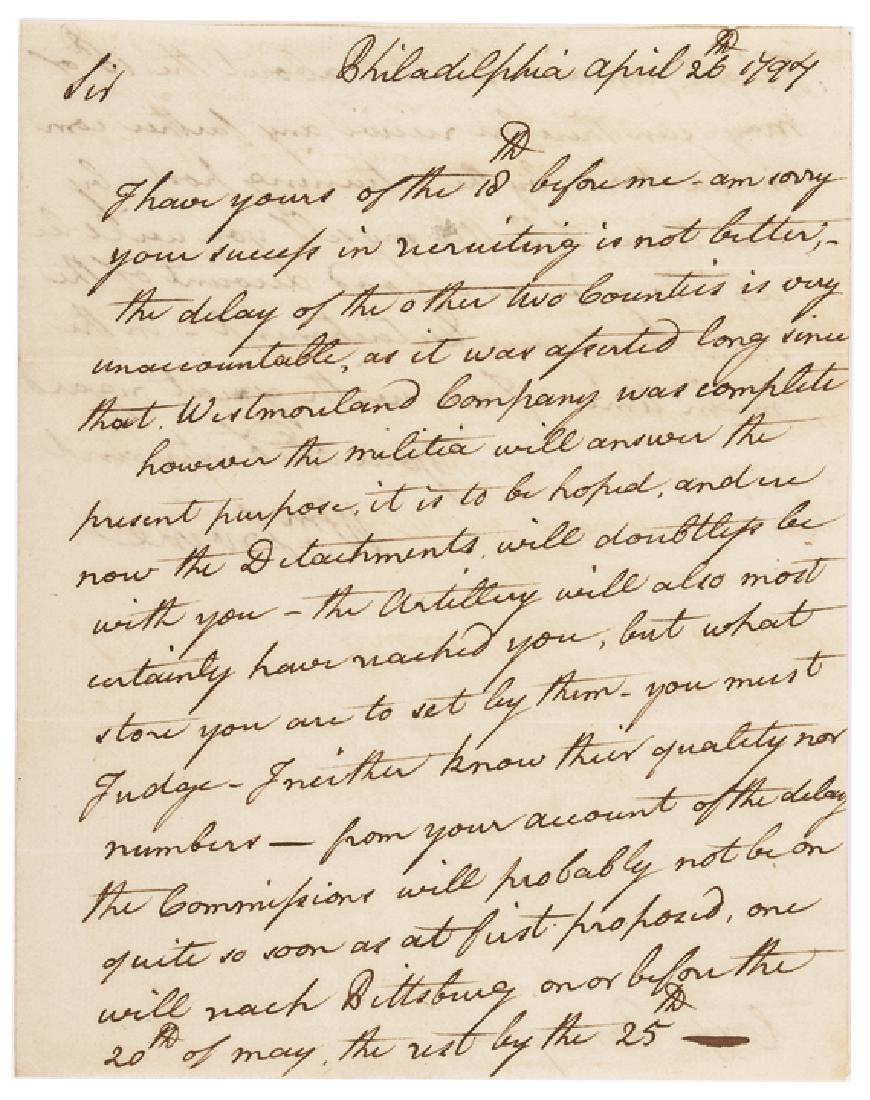 Philadelphia april 26th 1794
Sir
I have yours of the 18th before me - am sorry
your success in recruiting is not better, -
the delay of the other two Counties is very
unaccountable, as it was asserted long since
that Westmoreland Company was complete
however the militia will answer the
present purpose, it is to be hoped, and ere
now the Detachments will doubtless be
with you - the Artillery will also most
certainly have reached you, but what
store you are to set by them - you must
Judge - I neither know their quality nor
numbers — from your account of the delay
the Commissions will probably not be on
quite so soon as at first proposed, one
will reach Pittsburg on or before the
20th of may, the rest by the 25th —